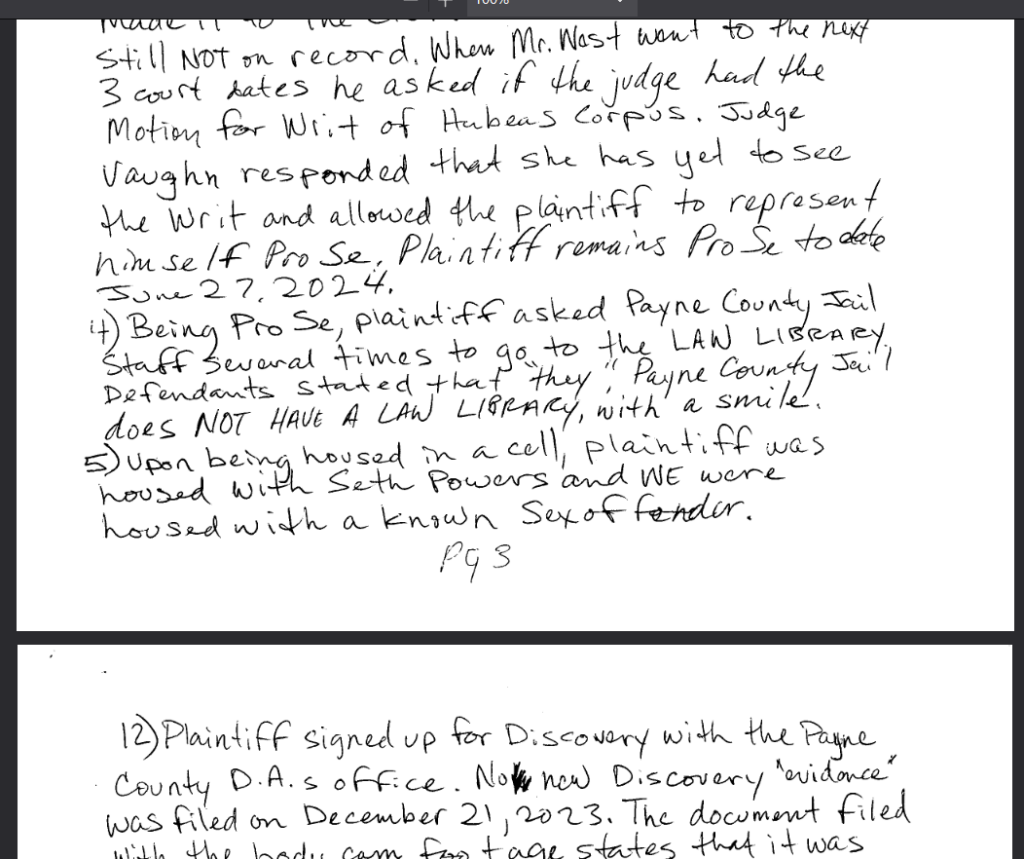 100%
Made it to the
still NOT on record. When Mr. West went to the next
3 court dates he asked if the judge had the
Motion for Writ of Habeas Corpus. Judge
Vaughn responded that she has yet to see
the Writ and allowed the plaintiff to represent
himself Pro Se. Plaintiff remains Pro Se to date
June 27, 2024.
4) Being Pro Se, plaintiff asked Payne County Jail
Staff several times to go to the LAW LIBRARY.
Defendants stated that "they", Payne County Jail
does NOT HAVE A LAW LIBRARY, with a smile.
5) Upon being housed in a cell, plaintiff was
housed with Seth Powers and WE were
housed with a known Sexoffender.
Pg 3
12) Plaintiff signed up for Discovery with the Payne
County D.A.s office. No new Discovery "evidence"
was filed on December 21, 2023. The document filed
with the body cam footage states that it was